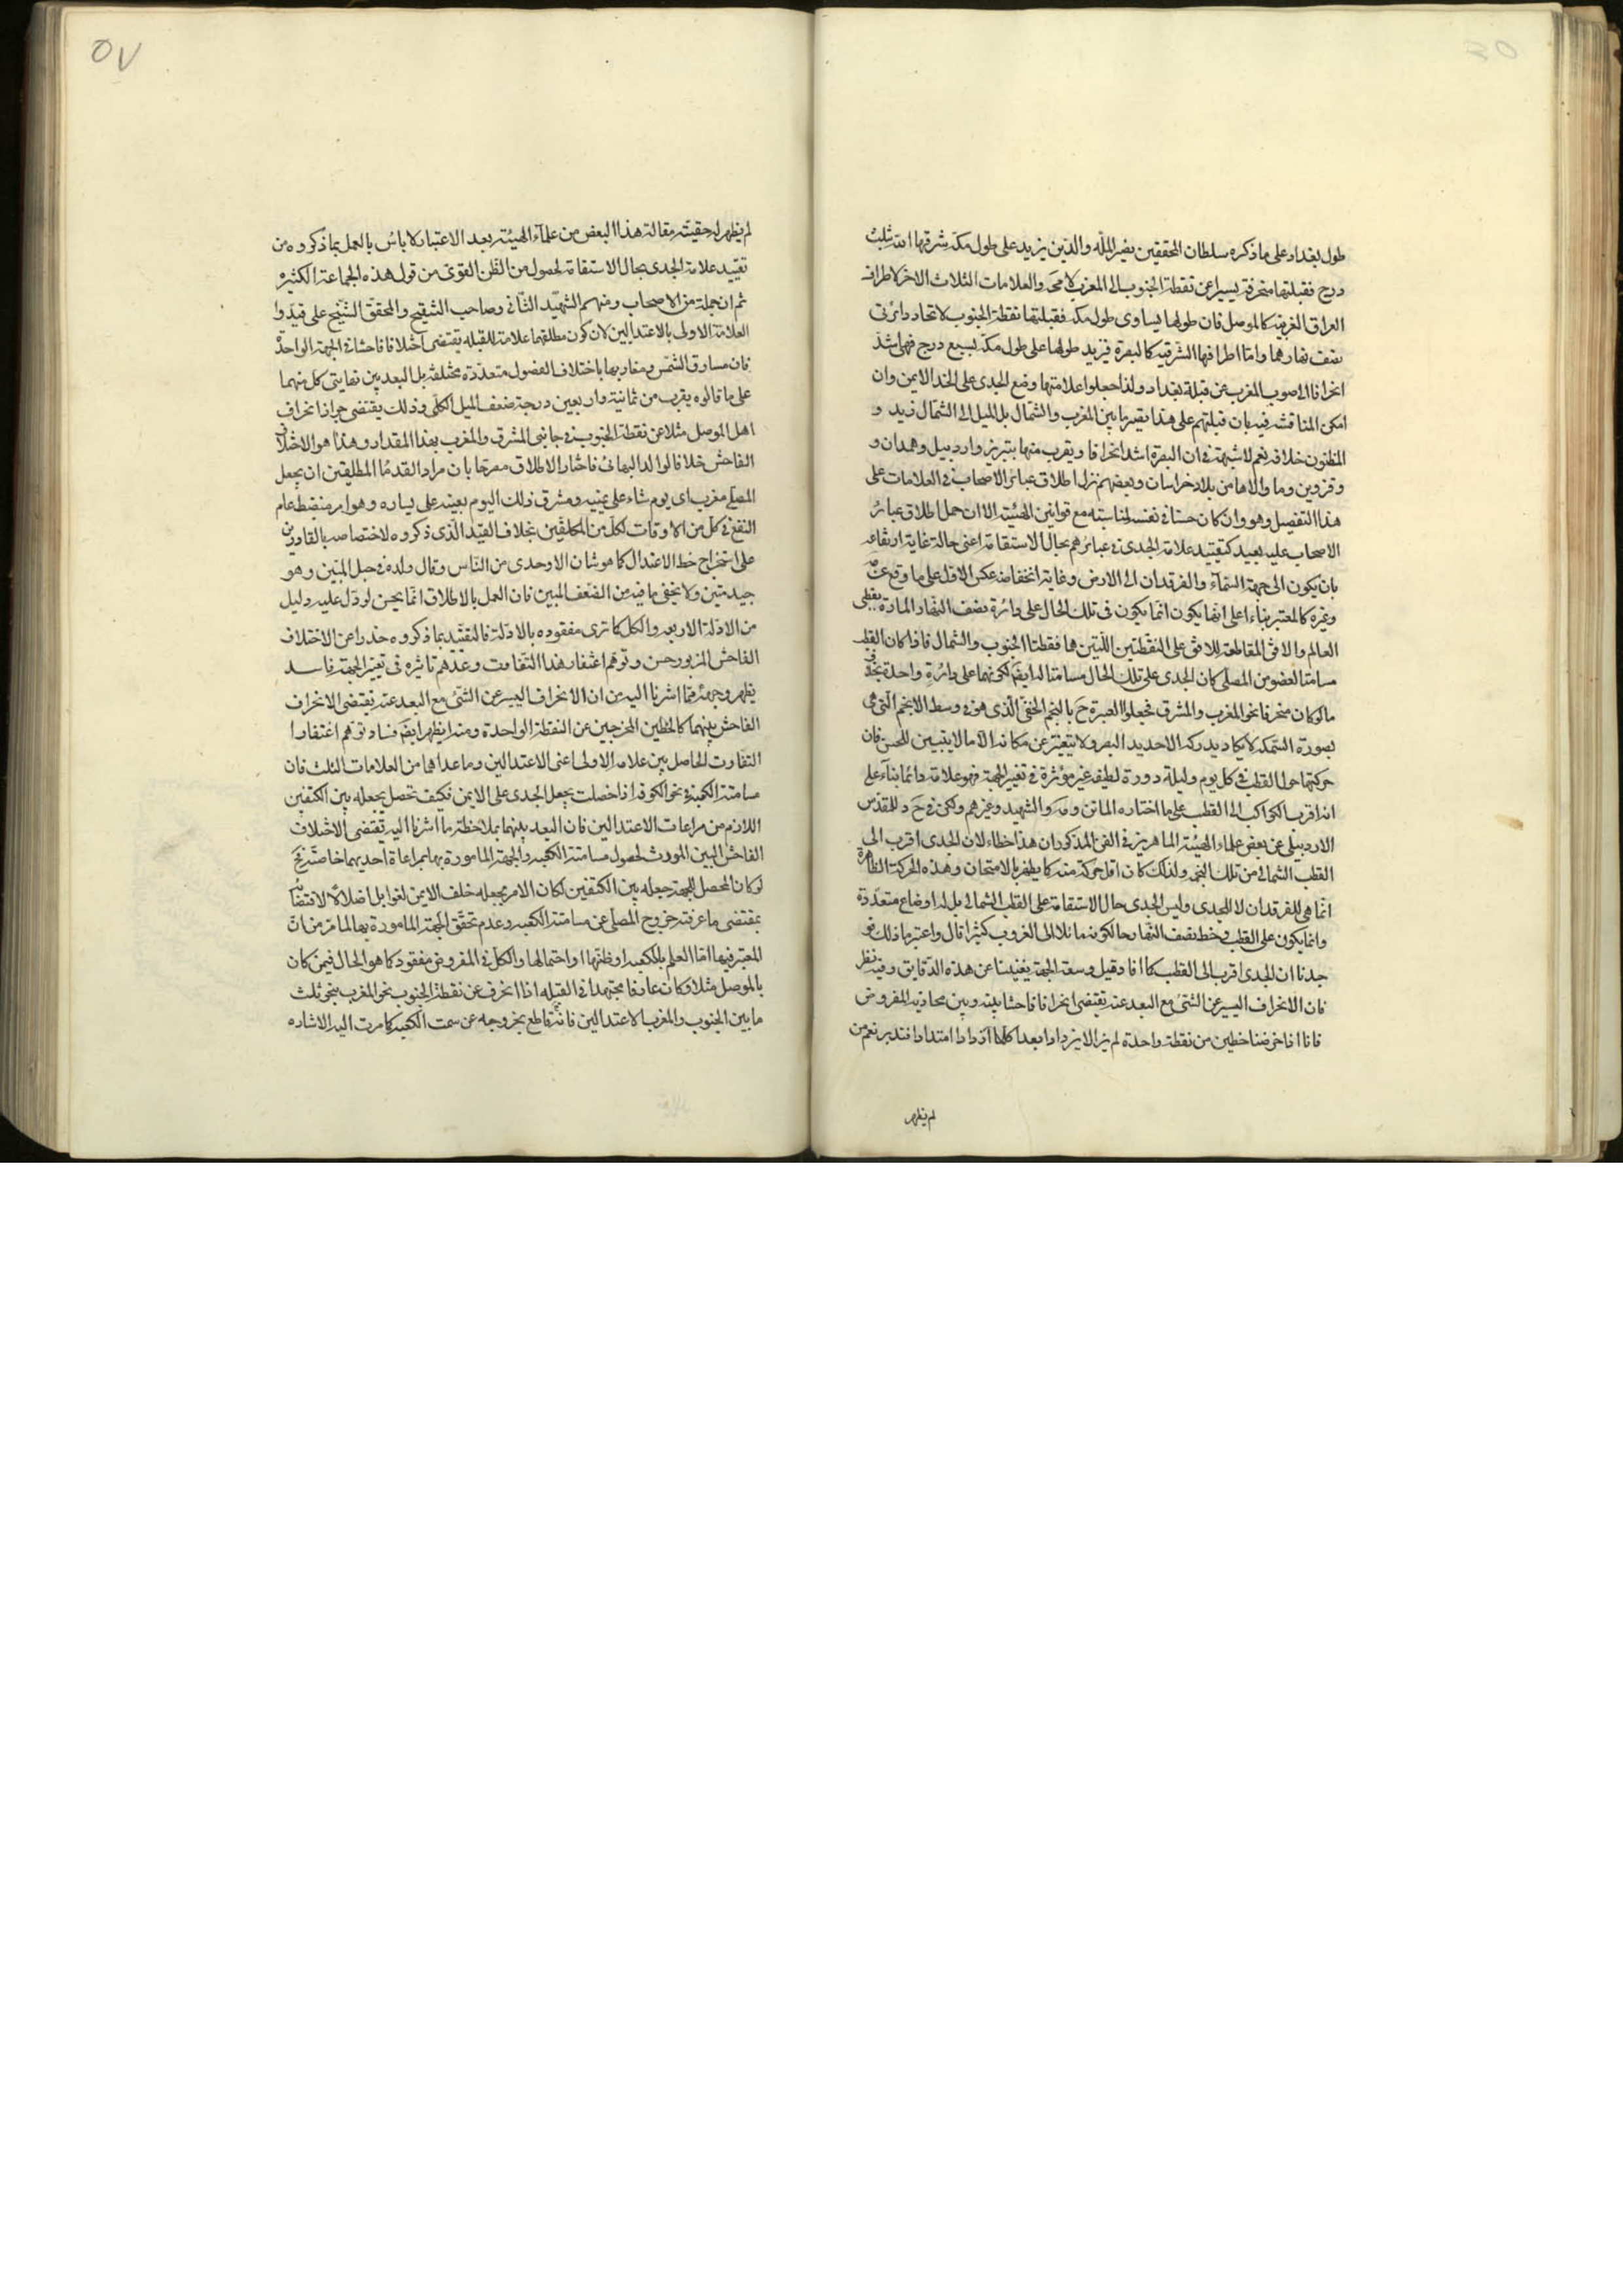 طول بغداد على ما ذكره سلطان المحققين نصير الملة والدين يزيد على طول مكة شرفها الله بثلث
درج فقبلتها منحرفة يسيرا عن نقطة الجنوب الى المغرب لا محة والعلامات الثلاث الاخر لاطراف
العراق الغربية كالموصل فان طولها يساوى طول مكة فقبلتها نقطة الجنوب لاتحاد دائرتى
نصف نهارهما واما اطرافها الشرقية كالبصرة فيزيد طولها على طول مكة بسبع درج فهى اشد
انحرافا الى صوب المغرب عن قبلة بغداد ولذا جعلوا علامتها وضع الجدى على الخد الايمن وان
امكن المناقشة فيه بان قبلتهم على هذا يصير ما بين المغرب والشمال بل الميل الى الشمال ازيد و
المظنون خلافه نعم لا شبهة فى ان البصرة اشد انحرافا ويقرب منها تبريز واردبيل وهمدان و
وقزوين وما والاها من بلاد خراسان وبعضهم نزل اطلاق عبائر الاصحاب فى العلامات على
هذا التفصيل وهو وان كان حسنا فى نفسه لمناسبته مع قوانين الهيئة الا ان حمل اطلاق عبائر
الاصحاب عليه بعيد كتقييد علامة الجدى فى عبائرهم بحال الاستقامة اعنى حالة غاية ارتفاعه
بان يكون الى جهة السماء والفرقدان الى الارض وغاية انخفاضه عكس الاول على ما وقع عن
وغيره كالمعتبر بناءا على انها يكون انما يكون فى تلك الحال على دائرة نصف النهار المارة بقطبى
العالم والافق المقاطعة للافق على النقطتين اللتين هما نقطتا الجنوب والشمال فاذا كان القطب
مسامتا لعضو من المصلى كان الجدى على تلك الحال مسامتا له ايضا لكونهما على دائرة واحدة بخلاف
ما لو كان منحرفا نحو المغرب والمشرق فجعلوا العبرة ح بالنجم الخفى الذى هو فى وسط الانجم التى هى
بصورة السمكة لا يكاد يدركه الا حديد البصر ولا يتغير عن مكانه الا ما لا يتبين للحس فان
حركتها حول القطب فى كل يوم وليلة دورة لطيفة غير مؤثرة فى تغيير الجهة فهو علامة دائما بناء على
انه اقرب الكواكب الى القطب على ما اختاره الماتن و والشهيد وغيرهم ولكن فى للمقدس
الاردبيلى عن بعض علماء الهيئة الماهرين فى الفن المذكور ان هذا خطاء لان الجدى اقرب الى
القطب الشمالى من تلك النجمة ولذلك كان اقل حركة منه كما يظهر بالامتحان وهذه الحركة الظاهرة
انما هى للفرقدان لا للجدى وليس للجدى حال الاستقامة على القطب الشمالى بل له اوضاع متعددة
وانما يكون على القطب وخط نصف النهار حالكونه مائلا الى الغروب كثيرا قال واعتبرنا ذلك فو
جدنا ان الجدى اقرب الى القطب كما افاد وقيل وسعة الجهة يغنينا عن هذه الدقايق وفيه نظر
فان الانحراف اليسير عن الشئ مع البعد عنه يقتضى انحرافا فاحشا بينه وبين محاذيه المفروض
فانا اذا فرضنا خطين من نقطة واحدة لم يزالا يزدادا بعدا كلما ازدادا امتدادا فتدبر نعم من
لم يظهر
٥٧
لم يظهر له حقيته مقالة هذا البعض من علماء الهيئة بعد الاعتبار لا باس بالعمل بما ذكروه من
تقييد علامة الجدى بحال الاستقامة لحصول من الظن القوى من قول هذه الجماعة الكثيرة
ثم ان جملة من الاصحاب ومنهم الشهيد الثانى وصاحب التنقيح والمحقق الشيخ على قيدوا
العلامة الاولى بالاعتدالين لان كون مطلقهما علامة للقبله يقتضى اختلافا فاحشا فى الجهة الواحدة
فان مشارق الشمس ومغاربها باختلاف الفصول متعددة مختلفة بل البعد بين نهايتى كل منهما
على ما قالوه يقرب من ثمانية واربعين درجة ضعف الميل الكلى وذلك يقتضى جواز انحراف
اهل الموصل مثلا عن نقطة الجنوب فى جانبى المشرق والمغرب بهذا المقدار وهذا هو الاختلاف
الفاحش خلافا لوالد البهائى فاختار الاطلاق مصرحا بان مراد القدماء المطلقين ان يجعل
المصلى مغرب اى يوم شاء على يمينه ومشرق ذلك اليوم بعينه على يساره وهو امر منضبط عام
النفع فى كل من الاوقات لكل من المكلفين بخلاف القيد الذى ذكروه لاختصاصه بالقادرين
على استخراج خط الاعتدال كما هو شان الاوحدى من الناس وقال ولده فى حبل المتين وهو
جيد متين ولا يخفى ما فيه من الضعف المبين فان العمل بالاطلاق انما يحسن لو دل عليه دليل
من الادلة الاربعه والكل كما ترى مفقوده بالادلة فالتقييد بما ذكروه حذرا عن الاختلاف
الفاحش المزبور حسن وتوهم اغتفار هذا التفاوت وعدم تاثيره فى تغيير الجهة فاسد
يظهر وجهه مما اشرنا اليه من ان الانحراف اليسير عن الشئ مع البعد عنه يقتضى الانحراف
الفاحش بينهما كالخطين المخرجين عن النقطة الواحدة ومنه ايظهر ايضا فساد توهم اغتفار
التفاوت الحاصل بين علامه الاولى اعنى الاعتدالين وما عداهما من العلامات الثلث فان
مسامتة الكعبة فى نحو الكوفه اذا حصلت بجعل الجدى على الايمن فكيف تحصل بجعله بين الكتفين
اللازم من مراعات الاعتدالين فان البعد بينهما بملاحظة ما اشرنا اليه يقتضى الاختلاف
الفاحش البين المورث لحصول مسامتة الكعبه والجهة المامورة بها بمراعاة احديهما خاصة فح
لو كان المحصل للجهة جعله بين الكتفين لكان الامر بجعله خلف الايمن لغوا بل اضلالا لاقتضائه
بمقتضى ما عرفته خروج المصلى عن مسامتة الكعبه وعدم تحقق الجهة المامورة بها لما مر من ان
المعتبر فيها اما العلم بالكعبه او ظنها او احتمالها والكل فى المفروض مفقود كما هو الحال فيمن كان
بالموصل مثلا وكان عارفا مجتهدا فى القبله اذا انحرف عن نقطة الجنوب نحو المغرب بنحو ثلث
ما بين الجنوب والمغرب الاعتدالين فانه قاطع بخروجه عن سمت الكعبه كما مرت اليه الاشاره